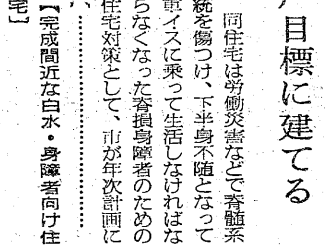 目標に建てる
同住宅は労働災害などで脊髄系
統を傷つけ、下半身不随となって
車イスに乗って生活しなければな
らなくなった脊損身障者のための
住宅対策として、市が年次計画に
【完成間近な白水・身障者向け住
宅】